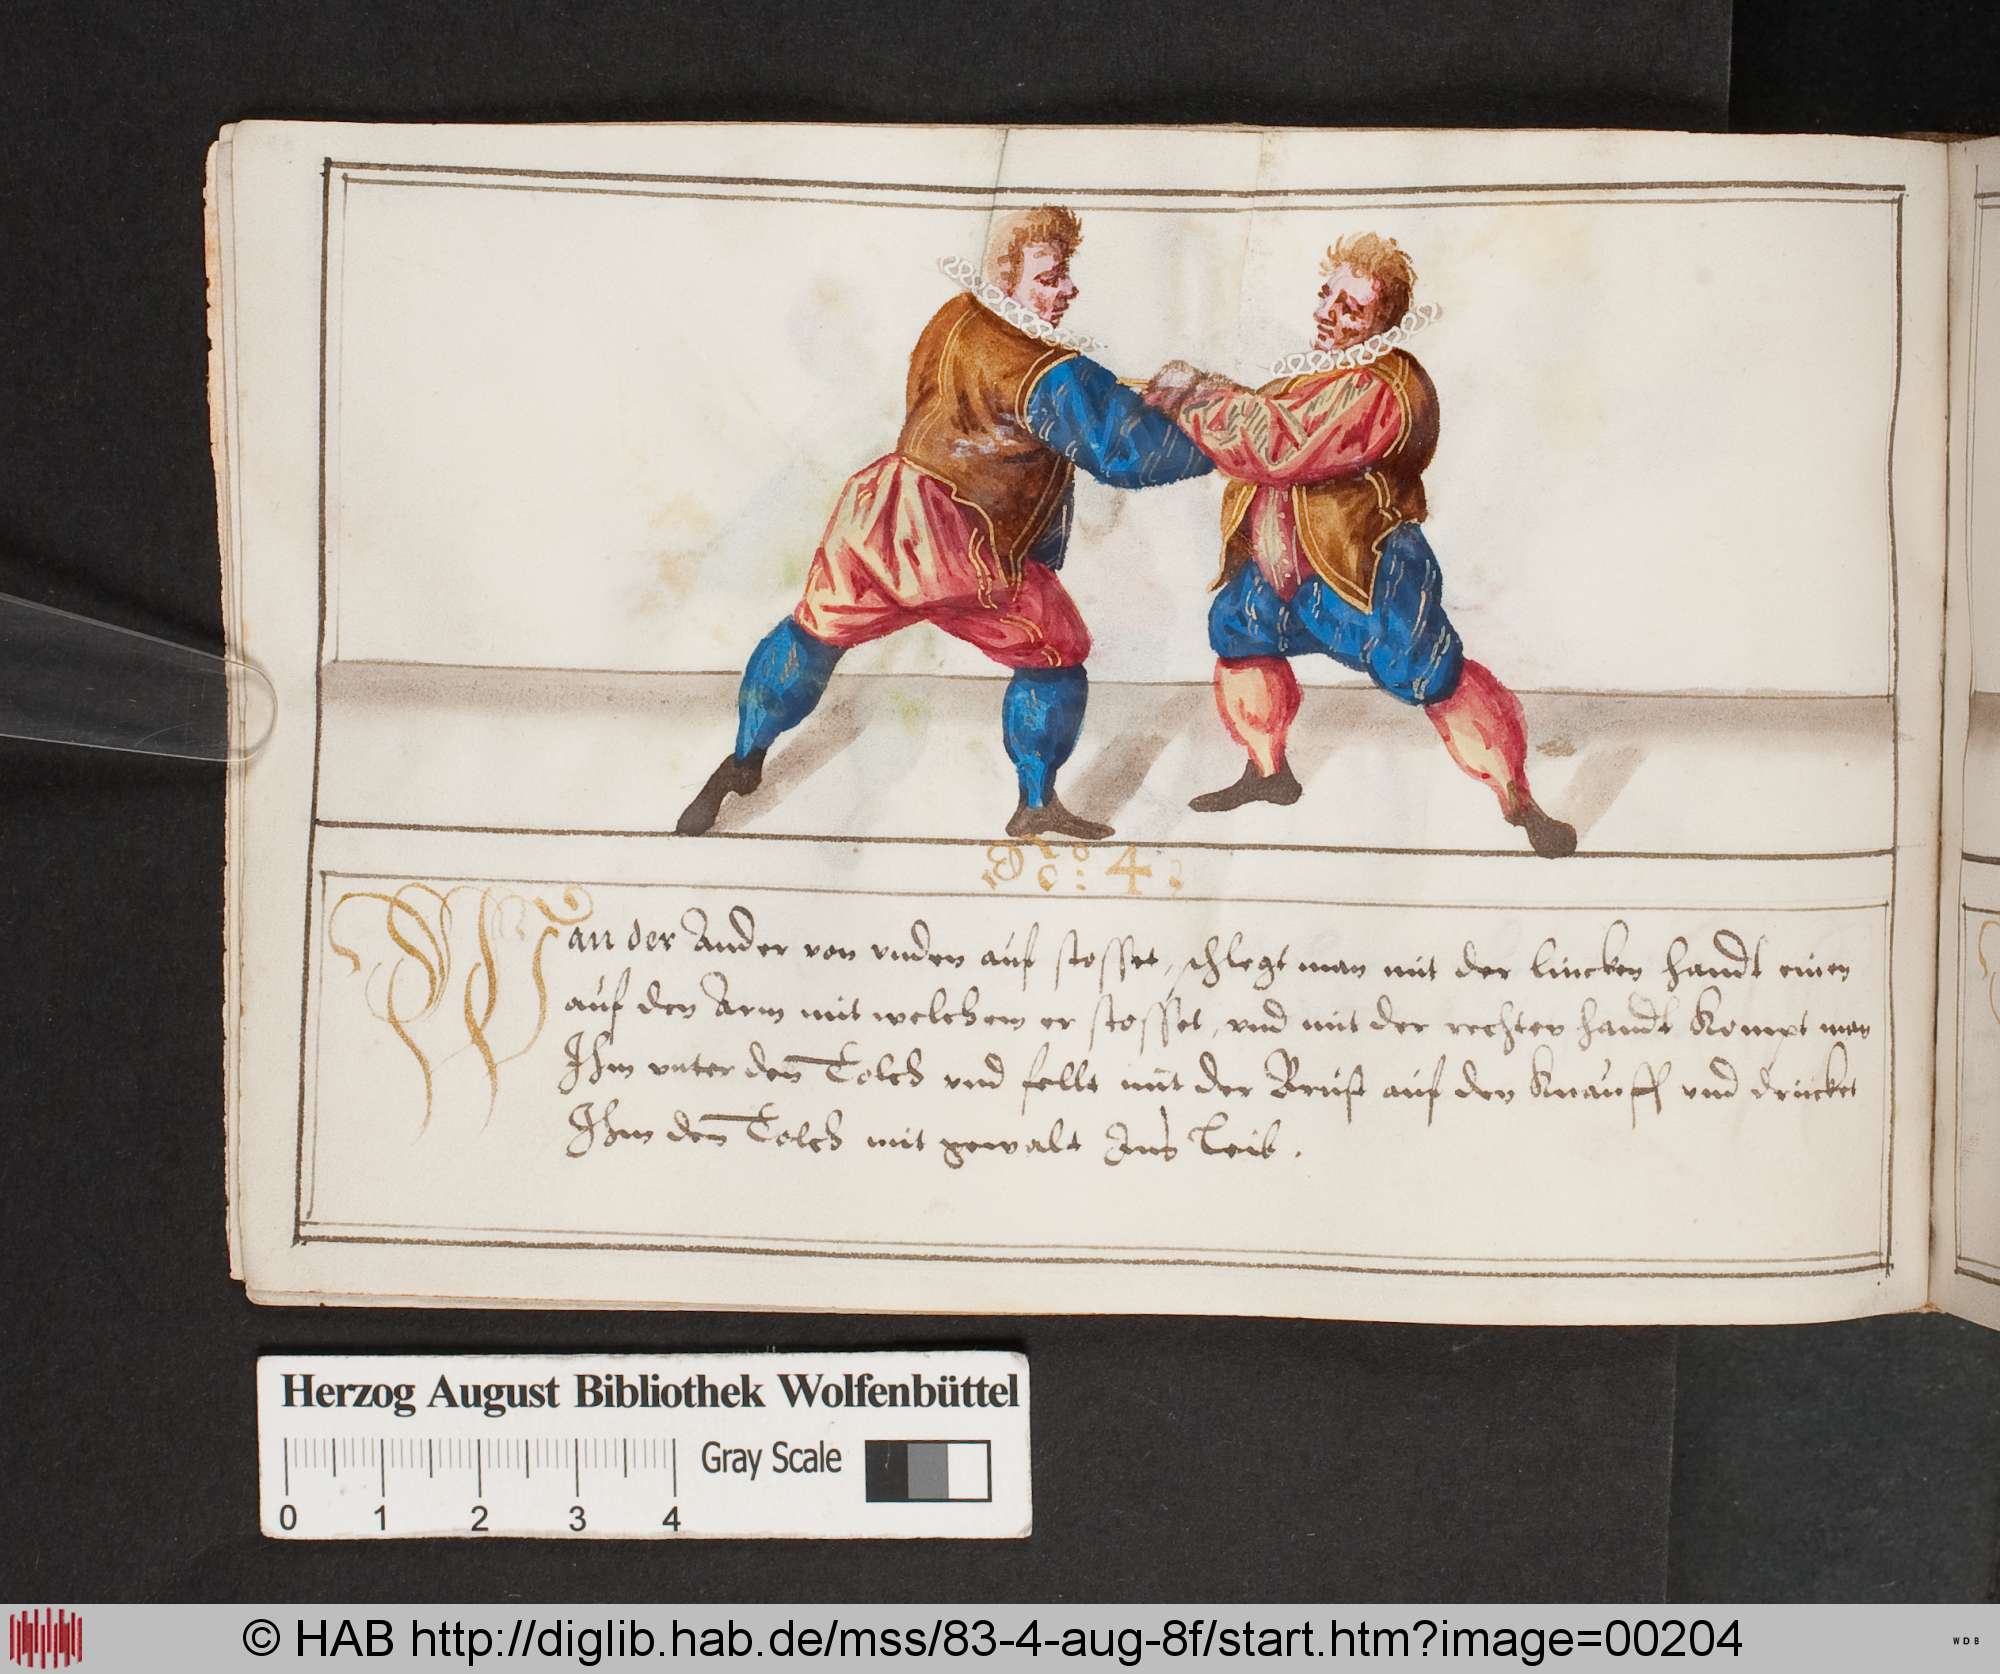 No: 4.
Wan der Ander von vnden auf stosset, schlegt man mit der lincken handt einen
auf den Arm mit welchem er stosset, vnd mit der rechten handt Kompt man
Ihm vnter den Tolch vnd fellt mit der Brust auf den Knauff vnd drucket
Ihm den Tolch mit gewalt Ins Leib.
Herzog August Bibliothek Wolfenbüttel
Gray Scale
0 1 2 3 4
© HAB http://diglib.hab.de/mss/83-4-aug-8f/start.htm?image=00204
WDB